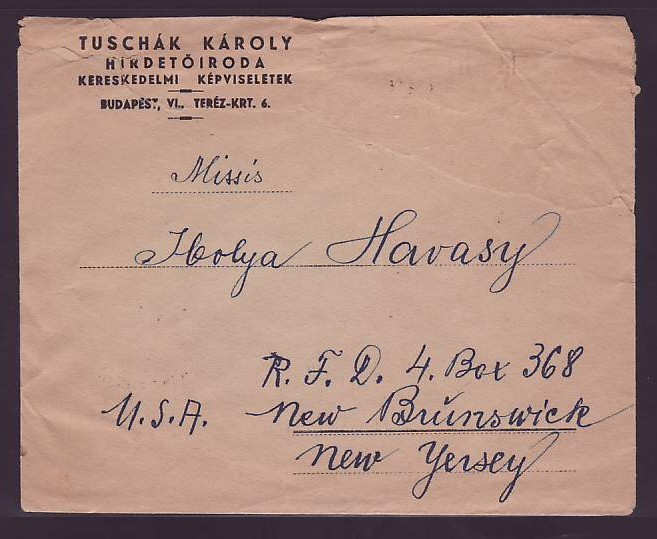 TUSCHÁK KÁROLY
HIRDETŐIRODA
KERESKEDELMI KÉPVISELETEK
BUDAPEST, VI., TERÉZ-KRT. 6.
Missis
Ibolya Havasy
R. F. D. 4. Box 368
U.S.A. New Brunswick
New Yersey